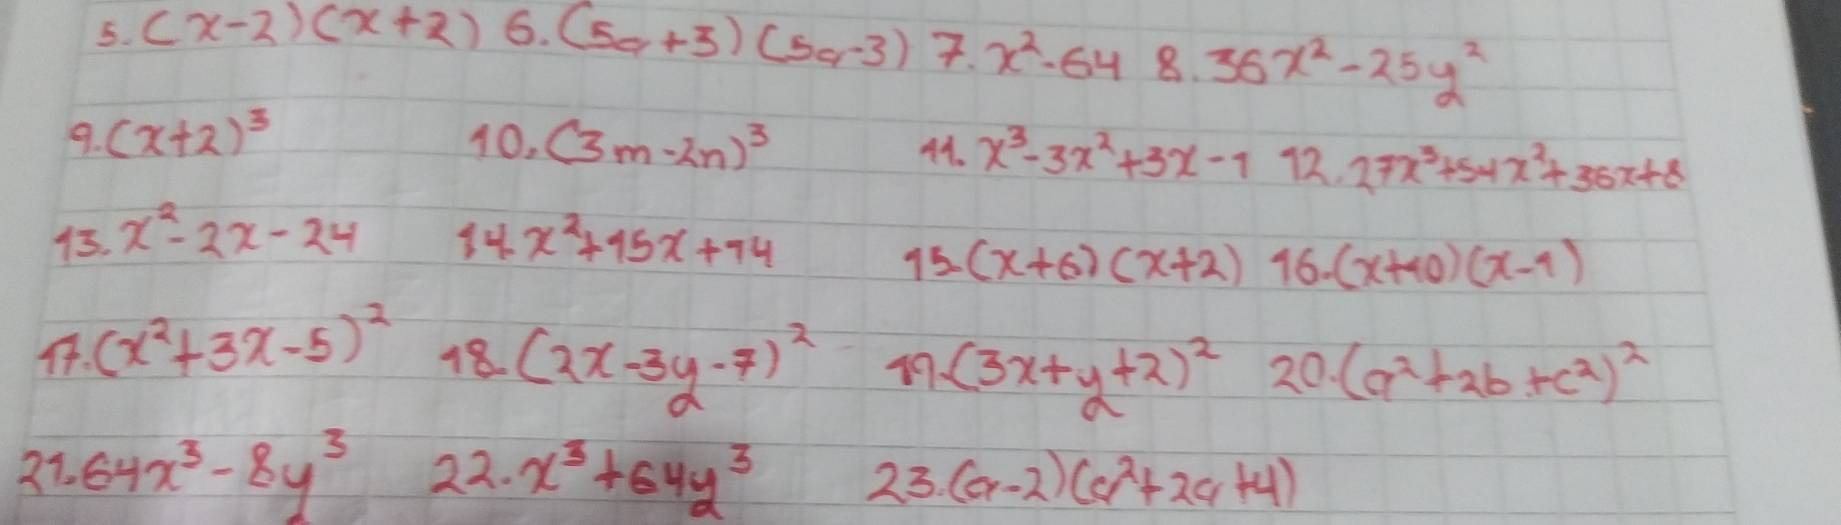 5. (x-2)(x+2) 6. (5a+3)(5a-3) 7. x²-64 8. 36x²-25y²
9. (x+2)³ 10. (3m-2n)³ 11. x³-3x²+3x-1 12. 27x³+54x²+36x+8
13. x²-2x-24 14. x²+15x+14 15. (x+6)(x+2) 16. (x+10)(x-1)
17. (x²+3x-5)² 18. (2x-3y-7)² 19. (3x+y+2)² 20. (a²+2b+c²)²
21. 64x³-8y³ 22. x³+64y³ 23. (a-2)(a²+2a+4)